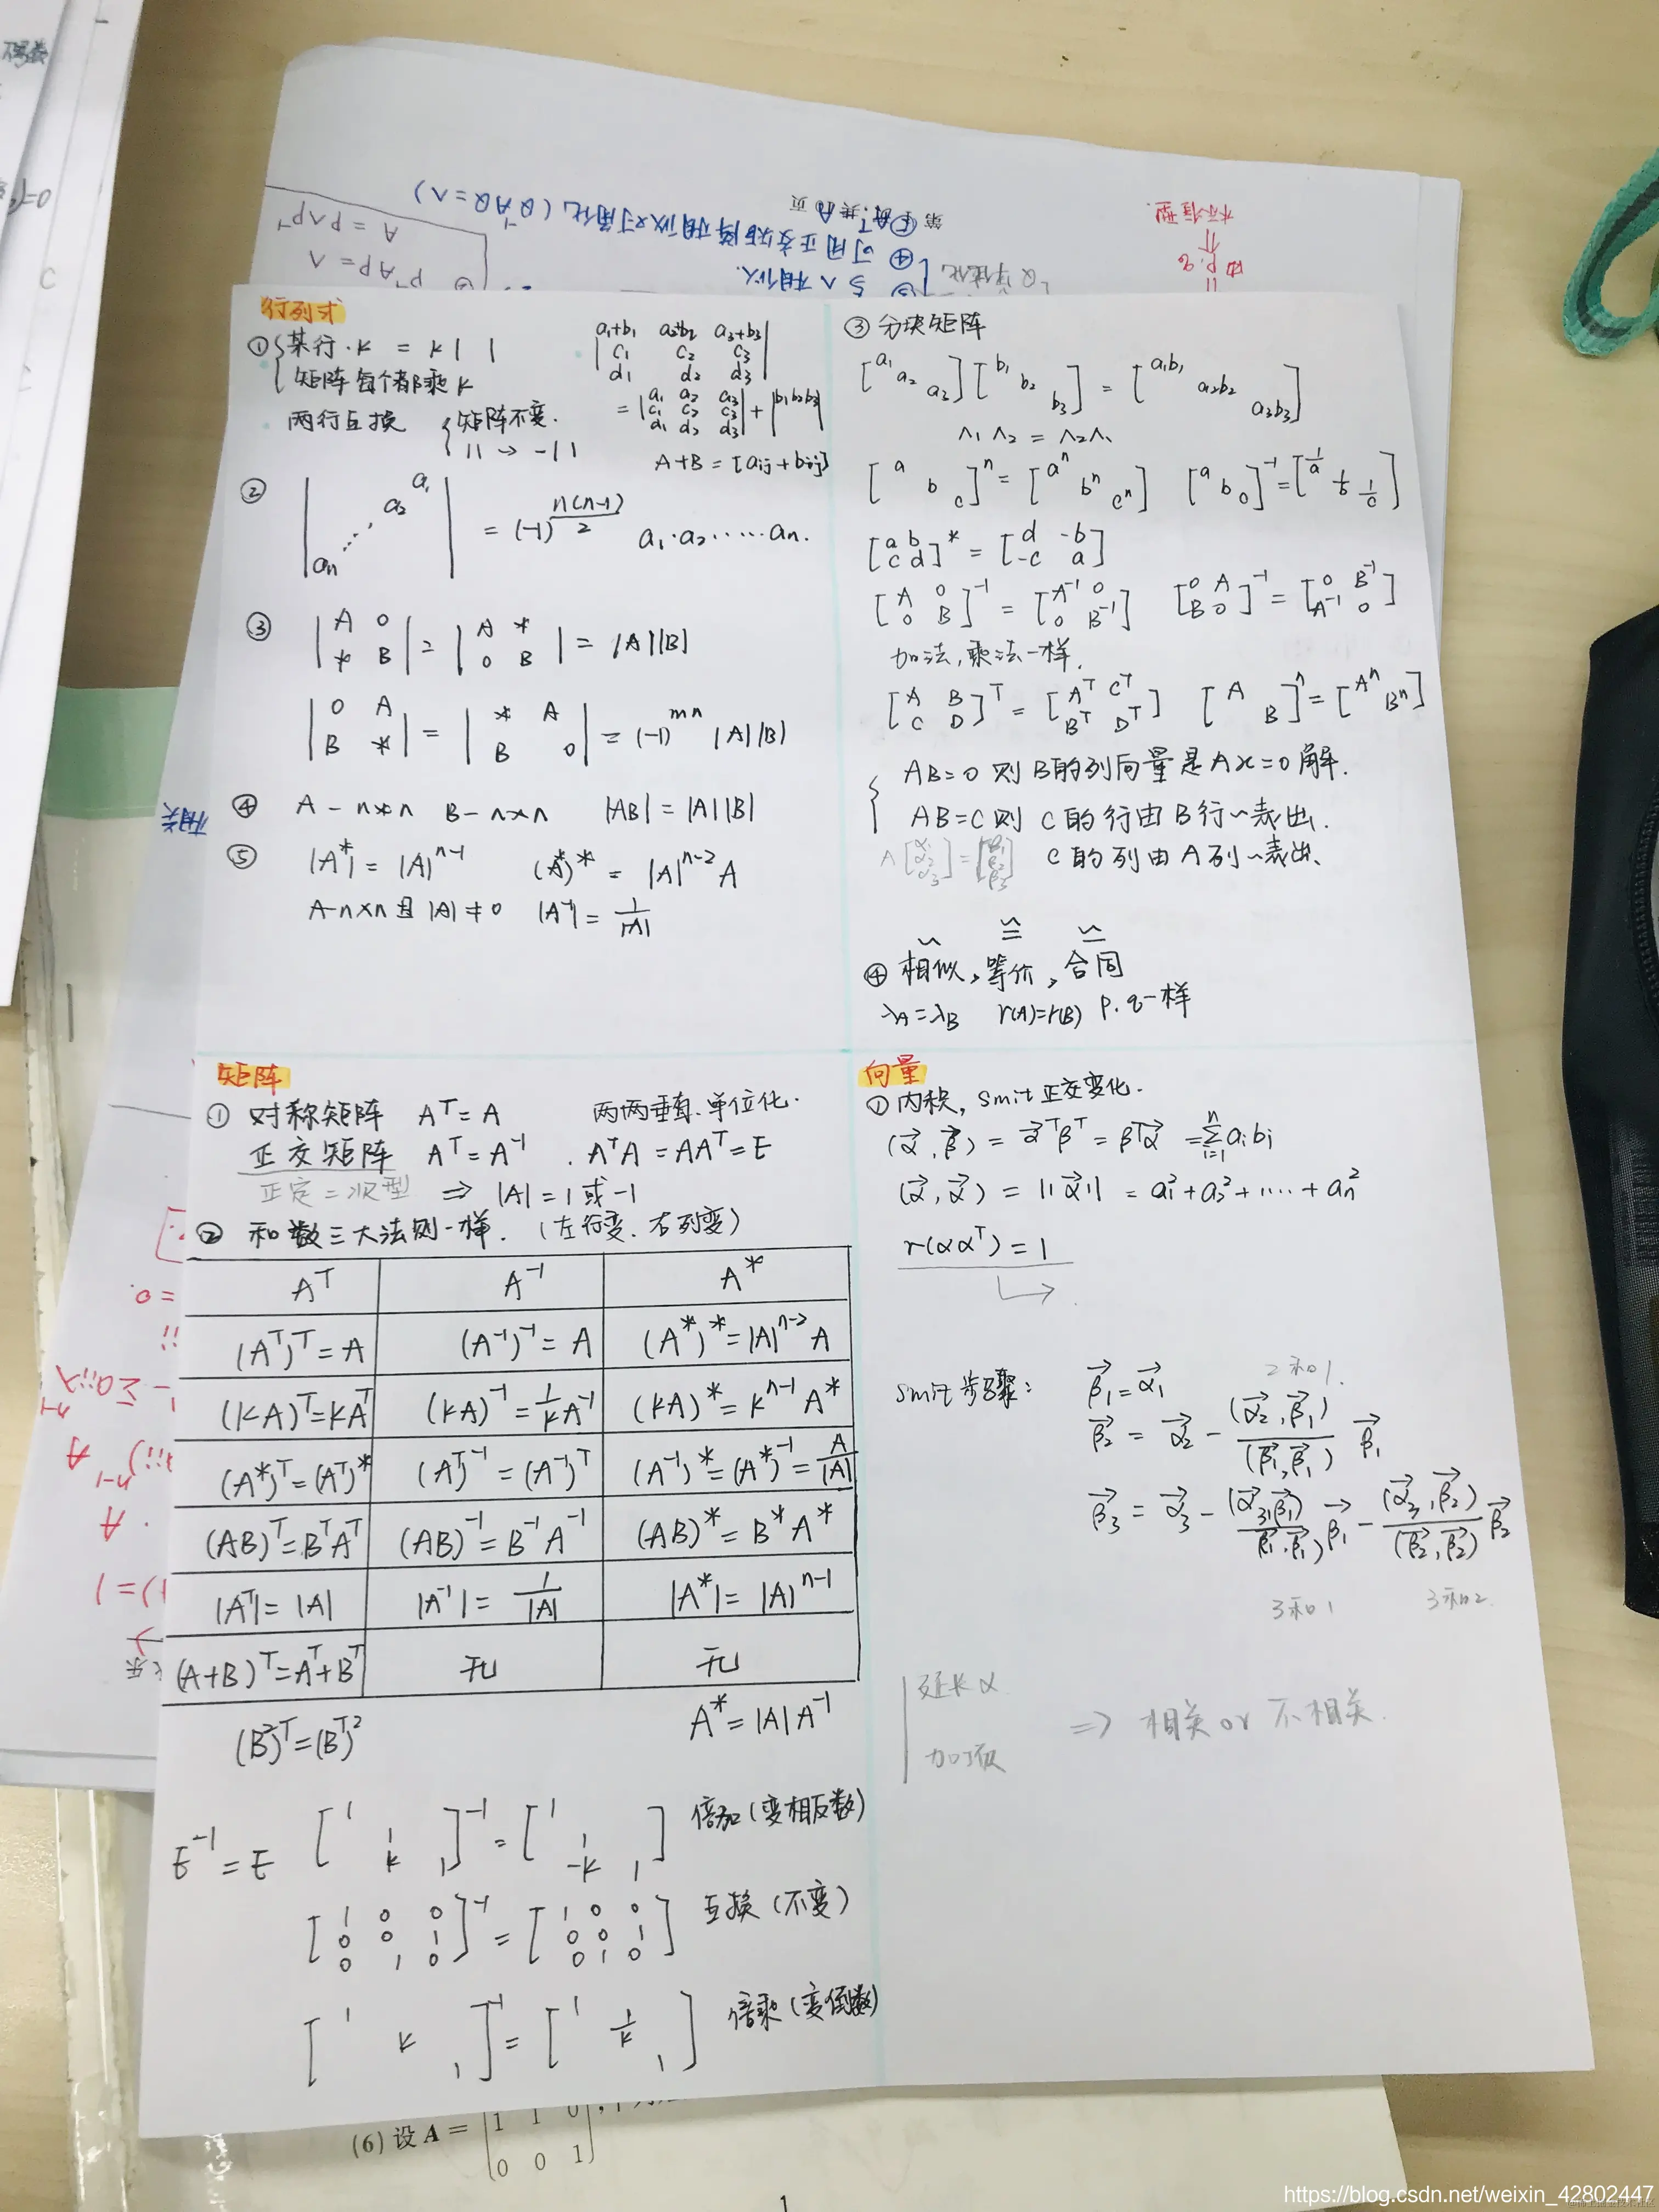 行列式
① 某行·k = k| |
矩阵每个都乘k
两行互换 矩阵不变.
|| → -||
|a₁+b₁ a₂+b₂ a₃+b₃|
|c₁ c₂ c₃|
|d₁ d₂ d₃|
= |a₁ a₂ a₃; c₁ c₂ c₃; d₁ d₂ d₃| + |b₁ b₂ b₃|
A+B = [aij + bij]
② |a₁ a₂ ⋯ an| = (-1)^(n(n-1)/2) a₁·a₂·····an.
③ |A 0; * B| = |A *; 0 B| = |A||B|
|0 A; B *| = |* A; B 0| = (-1)^mn |A||B|
④ A-n×n B-n×n |AB| = |A||B|
⑤ |A*| = |A|^(n-1) (A*)* = |A|^(n-2) A
A-n×n 且 |A| ≠ 0 |A⁻¹| = 1/|A|
③ 分块矩阵
[a₁ a₂ a₃][b₁ b₂ b₃] = [a₁b₁ a₂b₂ a₃b₃]
Λ₁Λ₂ = Λ₂Λ₁
[a b c]^n = [a^n b^n c^n] [a b c]⁻¹ = [1/a 1/b 1/c]
[a b; c d]* = [d -b; -c a]
[A 0; 0 B]⁻¹ = [A⁻¹ 0; 0 B⁻¹] [0 A; B 0]⁻¹ = [0 B⁻¹; A⁻¹ 0]
加法,乘法一样.
[A B; C D]^T = [A^T C^T; B^T D^T] [A B]^n = [A^n B^n]
AB=0 则 B的列向量是Ax=0解.
AB=C则 C的行由B行~表出.
A[α₁ α₂ α₃] = [β₁ β₂ β₃] C的列由A列~表出、
④ 相似,等价,合同
λA=λB r(A)=r(B) p.q一样
矩阵
① 对称矩阵 A^T = A 两两垂直.单位化.
正交矩阵 A^T = A⁻¹ . A^T A = AA^T = E
正定=次型 ⇒ |A| = 1 或 -1
② 和数三大法则一样. (左行变.右列变)
A^T A⁻¹ A*
(A^T)^T = A (A⁻¹)⁻¹ = A (A*)* = |A|^(n-2) A
(kA)^T = kA^T (kA)⁻¹ = 1/k A⁻¹ (kA)* = k^(n-1) A*
(A*)^T = (A^T)* (A^T)⁻¹ = (A⁻¹)^T (A⁻¹)* = (A*)⁻¹ = A/|A|
(AB)^T = B^T A^T (AB)⁻¹ = B⁻¹A⁻¹ (AB)* = B*A*
|A^T| = |A| |A⁻¹| = 1/|A| |A*| = |A|^(n-1)
(A+B)^T = A^T + B^T 无 无
(B²)^T = (B^T)² A* = |A|A⁻¹
E⁻¹ = E [1; 1; k 1]⁻¹ = [1; 1; -k 1] 倍加(变相反数)
[1 0 0; 0 0 1; 0 1 0]⁻¹ = [1 0 0; 0 0 1; 0 1 0] 互换(不变)
[1 k 1]⁻¹ = [1 1/k 1] 倍乘(变倒数)
向量
① 内积, smit正交变化.
(α⃗, β⃗) = α⃗^T β^T = β^T α⃗ = Σ(i=1→n) ai bi
(α⃗, α⃗) = ||α⃗|| = a₁² + a₂² + ···· + an²
r(αα^T) = 1
smit步骤: β⃗₁ = α⃗₁ 2和1.
β⃗₂ = α⃗₂ - (α⃗₂, β⃗₁)/(β⃗₁, β⃗₁) β⃗₁
β⃗₃ = α⃗₃ - (α⃗₃, β⃗₁)/(β⃗₁, β⃗₁) β⃗₁ - (α⃗₃, β⃗₂)/(β⃗₂, β⃗₂) β⃗₂
3和1 3和2.
延长α
⇒ 相关 or 不相关.
加项
④ 可用正交矩阵相似对角化 (Q⁻¹AQ = Λ)
⑤ 与Λ相似.
P⁻¹AP = Λ
A = PΛP⁻¹
由p.q
标准型.
相关
(6) 设 A =
1 1 0
0 0 1
1
https://blog.csdn.net/weixin_42802447